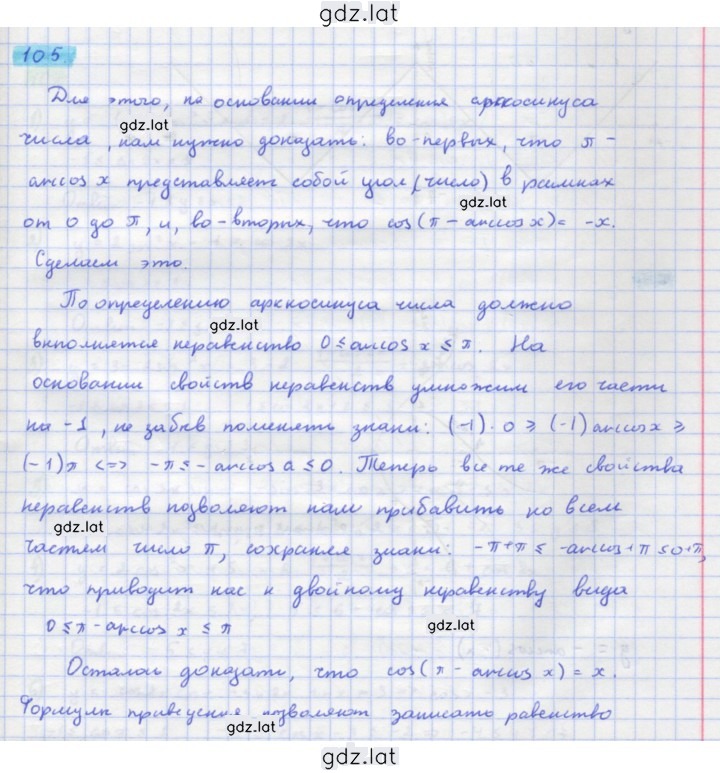 gdz.lat
105.
Для этого, на основании определения арккосинуса
gdz.lat
числа, нам нужно доказать: во-первых, что π -
arccos x представляет собой угол (число) в рамках
gdz.lat
от 0 до π, и, во-вторых, что cos(π - arccos x) = -x.
Сделаем это.
По определению арккосинуса числа должно
gdz.lat
выполняется неравенство 0 ≤ arccos x ≤ π. На
основании свойств неравенств умножим его части
на -1, не забыв поменять знаки: (-1)·0 ≥ (-1) arccos x ≥
(-1)π <=> -π ≤ - arccos a ≤ 0. Теперь все те же свойства
неравенств позволяют нам прибавить ко всем
gdz.lat
частям число π, сохраняя знаки: -π+π ≤ -arccos+π ≤ 0+π,
что приводит нас к двойному неравенству вида
0 ≤ π - arccos x ≤ π
gdz.lat
Осталось доказать, что cos(π - arccos x) = x.
Формулы приведения позволяют записать равенство
gdz.lat
gdz.lat